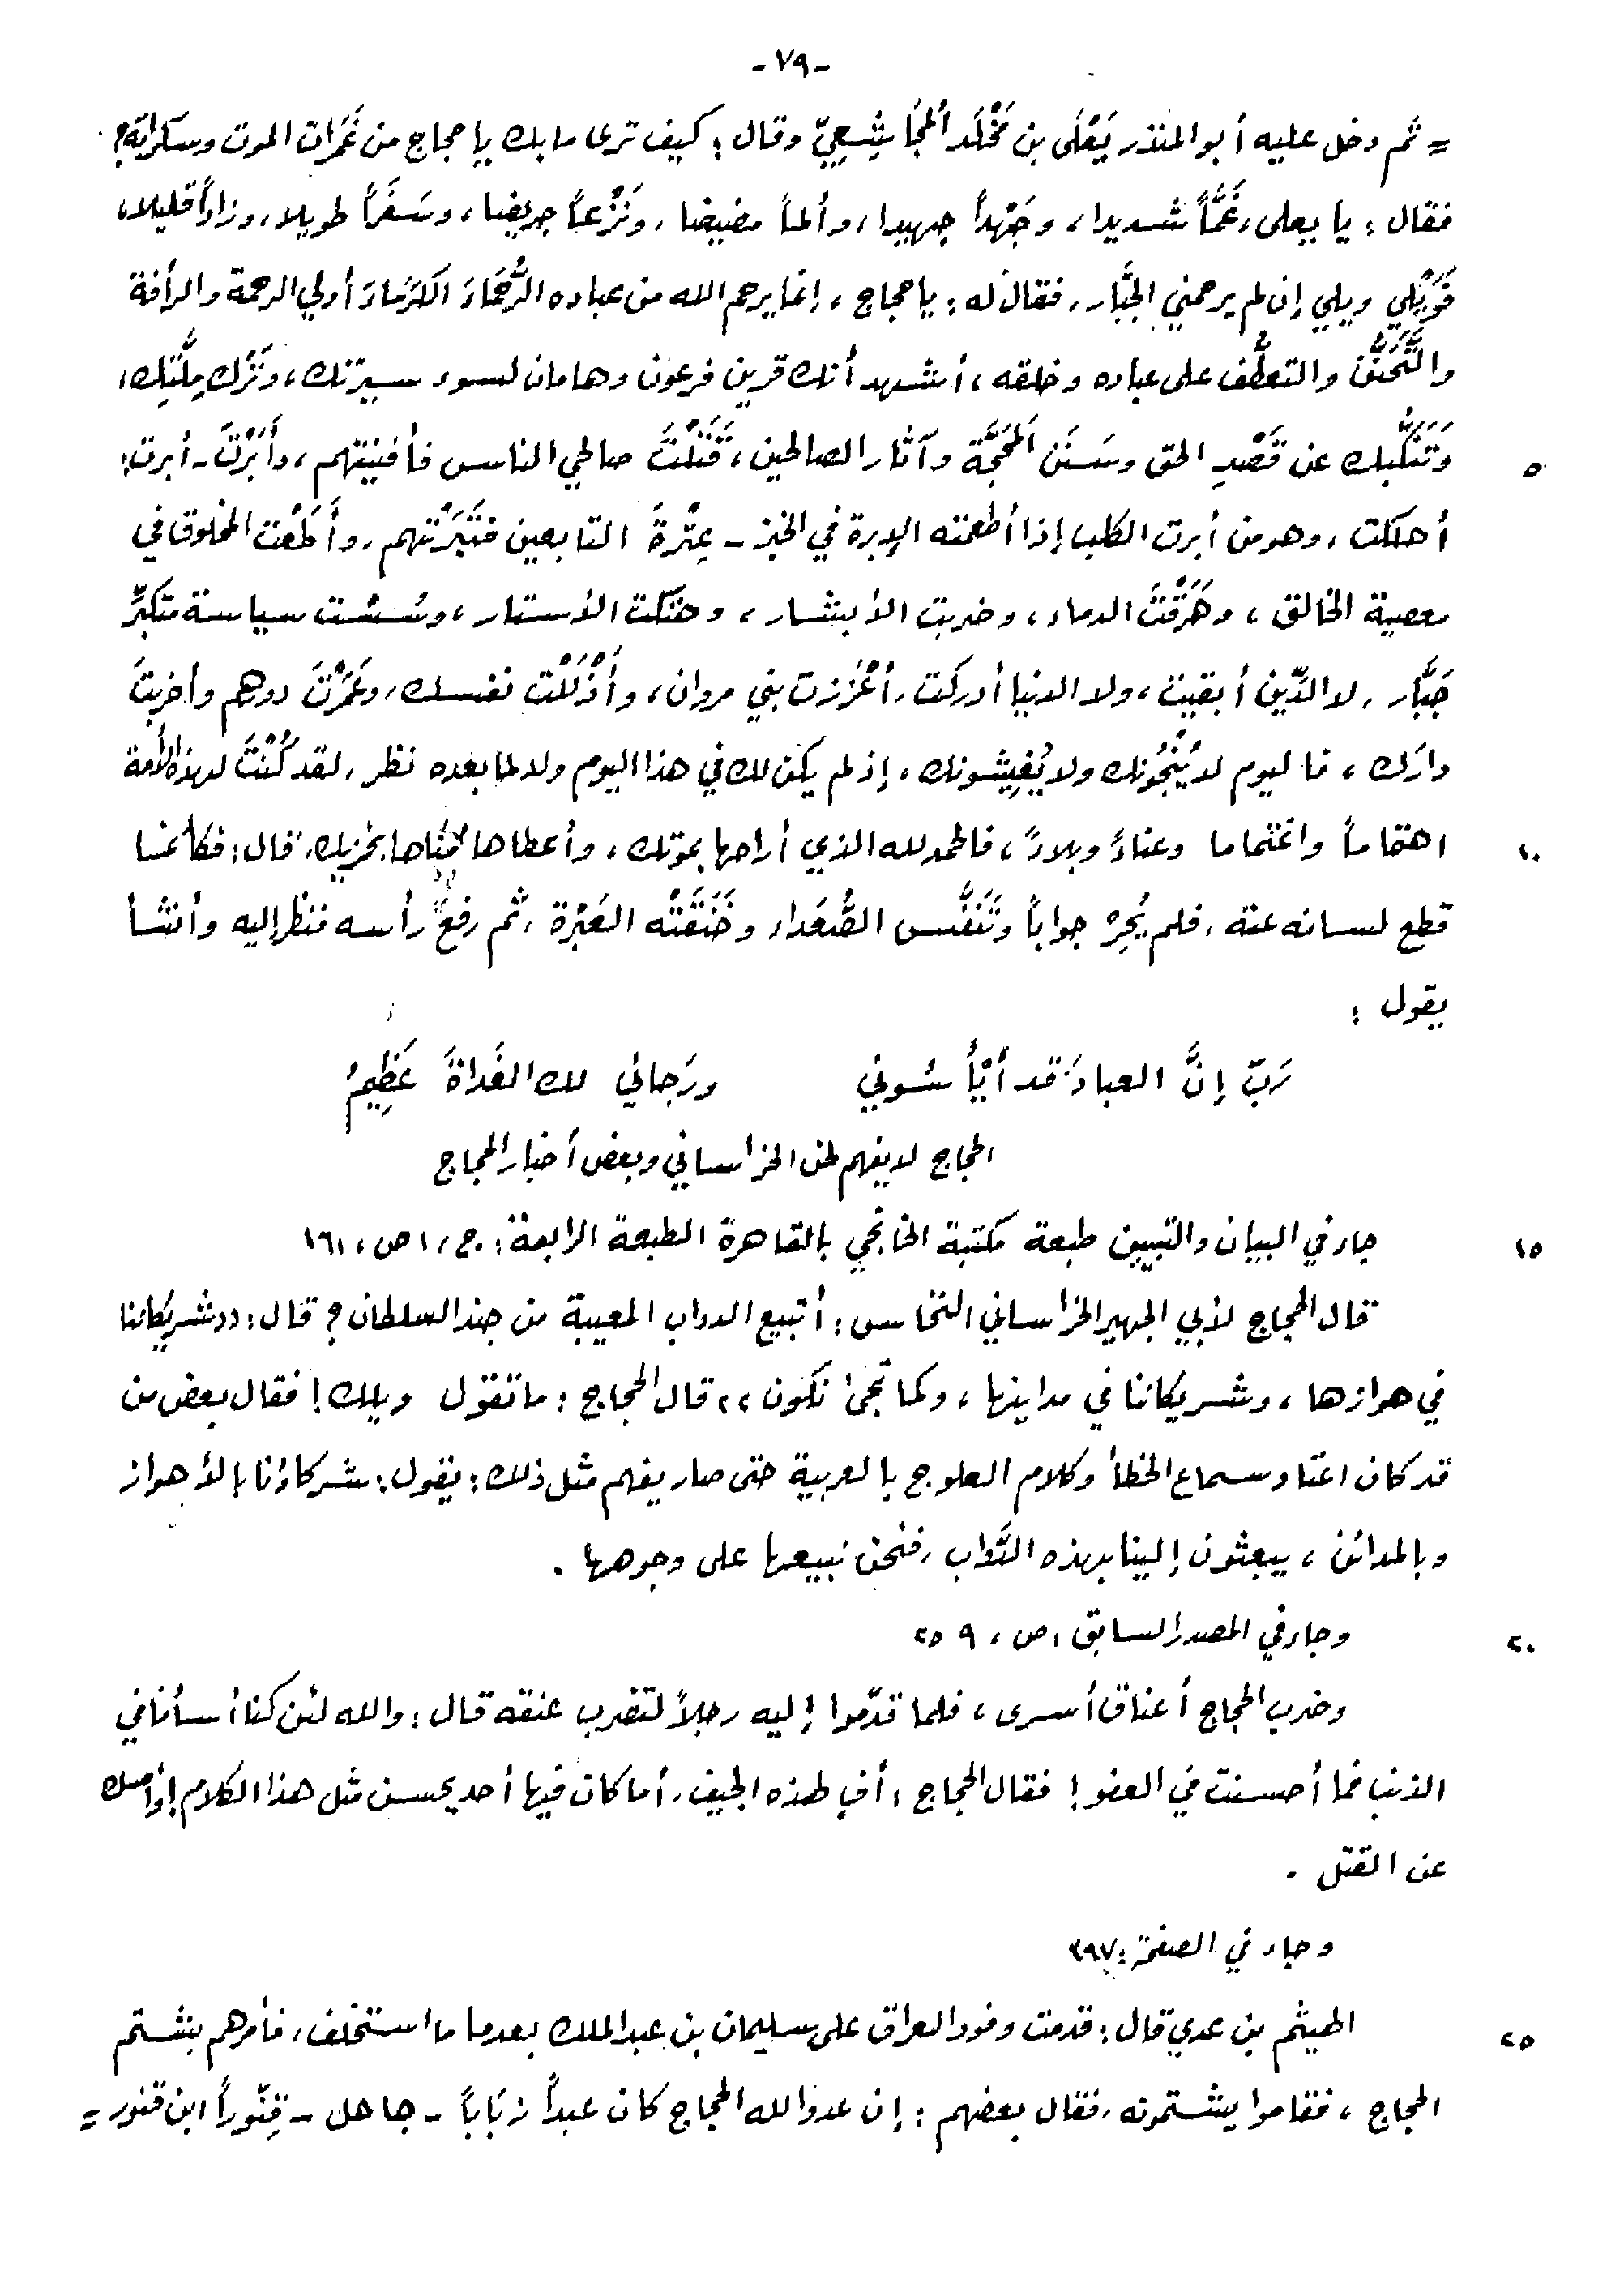 -٧٩-
= ثم دخل عليه أبو المنذر يَعْلَى بن مَخْلَد المُجَاشِعِيّ وقال: كيف ترى ما بك يا حجاج من غَمَرات الموت وسكراته؟
فقال: يا يعلى، غَمًّاً شديدا، وجَهْداً جهيدا، وألماً مضيضا، ونَزْعاً جريضا، وسَفَراً طويلا، وزاداً قليلا،
فَوَيْلي ويلي إن لم يرحمني الجبَّار. فقال له: يا حجاج، إنما يرحم الله من عباده الرُّحَمَاءَ الكرَمَاءَ أولي الرحمة والرأفة
والتَّحَنُّن والتعطُّف على عباده وخلقه، أشهد أنك قرين فرعون وهامان لسوء سيرتك، وتَرْك مِلَّتِك،
٥ وَتَنَكُّبك عن قَصْدِ الحق وسَنَن المَحَجَّة وآثار الصالحين، قَتَلْتَ صالحي الناس فأفنيتهم، وأَبَرْتَ - أبرت:
أهلكت، وهو من أبرت الكلب إذا أطعمته الإبرة في الخبز - عِتْرةَ التابعين فتَبَّرْتهم، وأَطَعْت المخلوق في
معصية الخالق، وهَرَقْتَ الدماء، وضربت الأبشار، وهتكت الأستار، وسُسْت سياسة متكبِّر
جَبَّار، لا الدِّين أبقيت، ولا الدنيا أدركت، أعْزَزت بني مروان، وأَذْلَلْت نفسك، وعَمَرْتَ دورهم وأخربتَ
دارَك، فاليوم لا يُنْجُونك ولا يُغِيثونك، إذ لم يكن لك في هذا اليوم ولا لما بعده نظر، لقد كُنْتَ لهذه الأمة
١٠ اهتماماً واغتماما وعناءً وبلاءً، فالحمد لله الذي أراحها بموتك، وأعطاها مُناها بخزيك. قال: فكأنما
قطع لسانه عنه، فلم يُحِرْ جواباً وتَنَفَّس الصُّعَداء وخَنَقَتْه العَبْرة، ثم رفع رأسه فنظر إليه وأنشأ
يقول:
رَبّ إنَّ العبادَ قد أيْأَسُوني ورَجائي لك الغَداةَ عَظِيمُ
الحجاج لا يفهم لحن الخراساني وبعض أخبار الحجاج
١٥ جاء في البيان والتبيين طبعة مكتبة الخانجي بالقاهرة الطبعة الرابعة: ج، ١ ص، ١٦١
قال الحجاج لأبي الجهير الخراساني النخاس: أتبيع الدواب المعيبة من جند السلطان؟ قال: «شريكاننا
في هوازها، وشريكاننا في مداينها، وكما تجئ نكون» قال الحجاج: ما تقول ويلك! فقال بعض من
قد كان اعتاد سماع الخطأ وكلام العلوج بالعربية حتى صار يفهم مثل ذلك: يقول: شركاؤنا بالأهواز
وبالمدائن، يبعثون إلينا بهذه الدَّواب، فنحن نبيعها على وجوهها.
٢٠ وجاء في المصدر السابق، ص، ٢٥٩
وضرب الحجاج أعناق أسرى، فلما قدّموا إليه رجلاً لتضرب عنقه قال: والله لئن كنا أسأنا في
الذنب فما أحسنت في العفو! فقال الحجاج: أفٍ لهذه الجيف، أما كان فيها أحد يحسن مثل هذا الكلام! وأمسك
عن القتل.
وجاء في الصفحة: ٣٩٧
٢٥ الهيثم بن عدي قال: قدمت وفود العراق على سليمان بن عبد الملك بعدما ما استخلف، فأمرهم بشتم
الحجاج، فقاموا يشتمونه، فقال بعضهم: إن عدو الله الحجاج كان عبداً زبَاباً - جاهل - قِنّوراً ابن قنور =